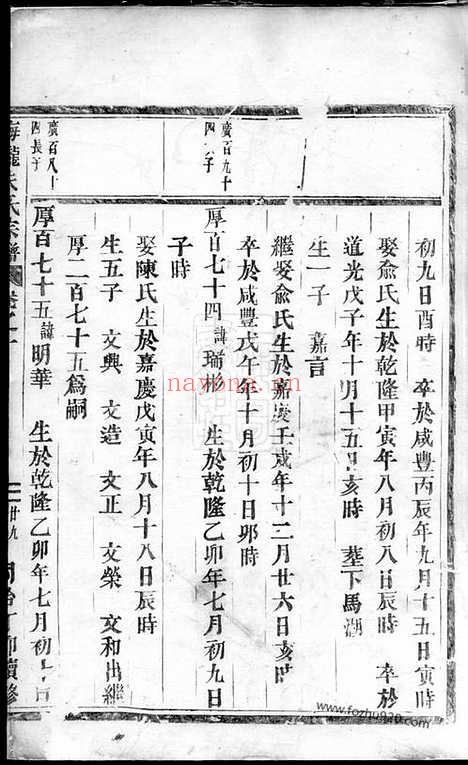 初九日酉時　卒於咸豐丙辰年九月十五日寅時
娶俞氏生於乾隆甲寅年八月初八日辰時　卒於
道光戊子年十月十五日亥時　塟下馬湖
生一子　嘉言
繼娶俞氏生於嘉慶壬戌年十二月廿六日亥時
卒於咸豐戊午年十月初十日卯時
廣百九十
四　子
厚百七十四諱瑞彬　生於乾隆乙卯年七月初九日
子時
娶陳氏生於嘉慶戊寅年八月十八日辰時
生五子　文興　文造　文正　文榮　文和出繼
厚二百七十五為嗣
廣百八十
四長子
厚百七十五諱明華　生於乾隆乙卯年七月初十日
氏宗譜
廿九
續修
nayona.cn
www.fozhu920.com